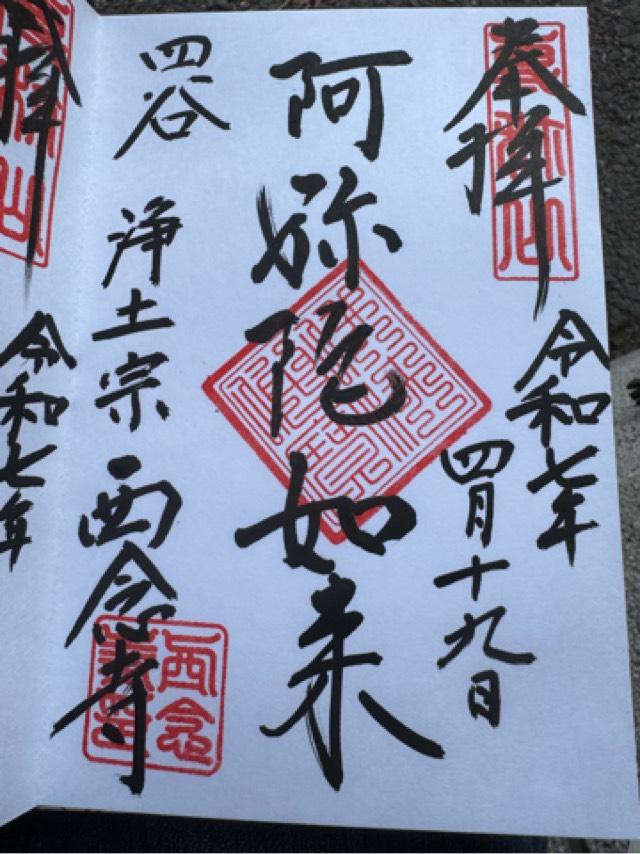 奉拝
令和七年
四月十九日
阿弥陀如来
四谷
浄土宗
西念寺
拝
令和七年